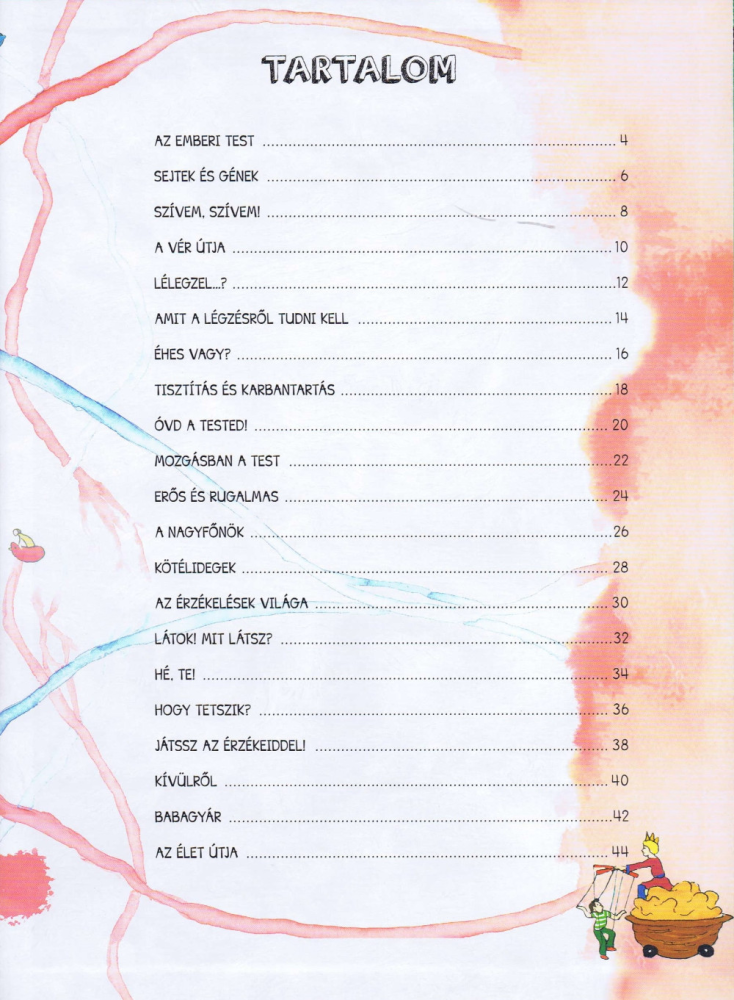 TARTALOM
AZ EMBERI TEST ........ 4
SEJTEK ÉS GÉNEK ........ 6
SZÍVEM, SZÍVEM! ........ 8
A VÉR ÚTJA ........ 10
LÉLEGZEL...? ........ 12
AMIT A LÉGZÉSRŐL TUDNI KELL ........ 14
ÉHES VAGY? ........ 16
TISZTÍTÁS ÉS KARBANTARTÁS ........ 18
ÓVD A TESTED! ........ 20
MOZGÁSBAN A TEST ........ 22
ERŐS ÉS RUGALMAS ........ 24
A NAGYFŐNÖK ........ 26
KÖTÉLIDEGEK ........ 28
AZ ÉRZÉKELÉSEK VILÁGA ........ 30
LÁTOK! MIT LÁTSZ? ........ 32
HÉ, TE! ........ 34
HOGY TETSZIK? ........ 36
JÁTSSZ AZ ÉRZÉKEIDDEL! ........ 38
KÍVÜLRŐL ........ 40
BABAGYÁR ........ 42
AZ ÉLET ÚTJA ........ 44